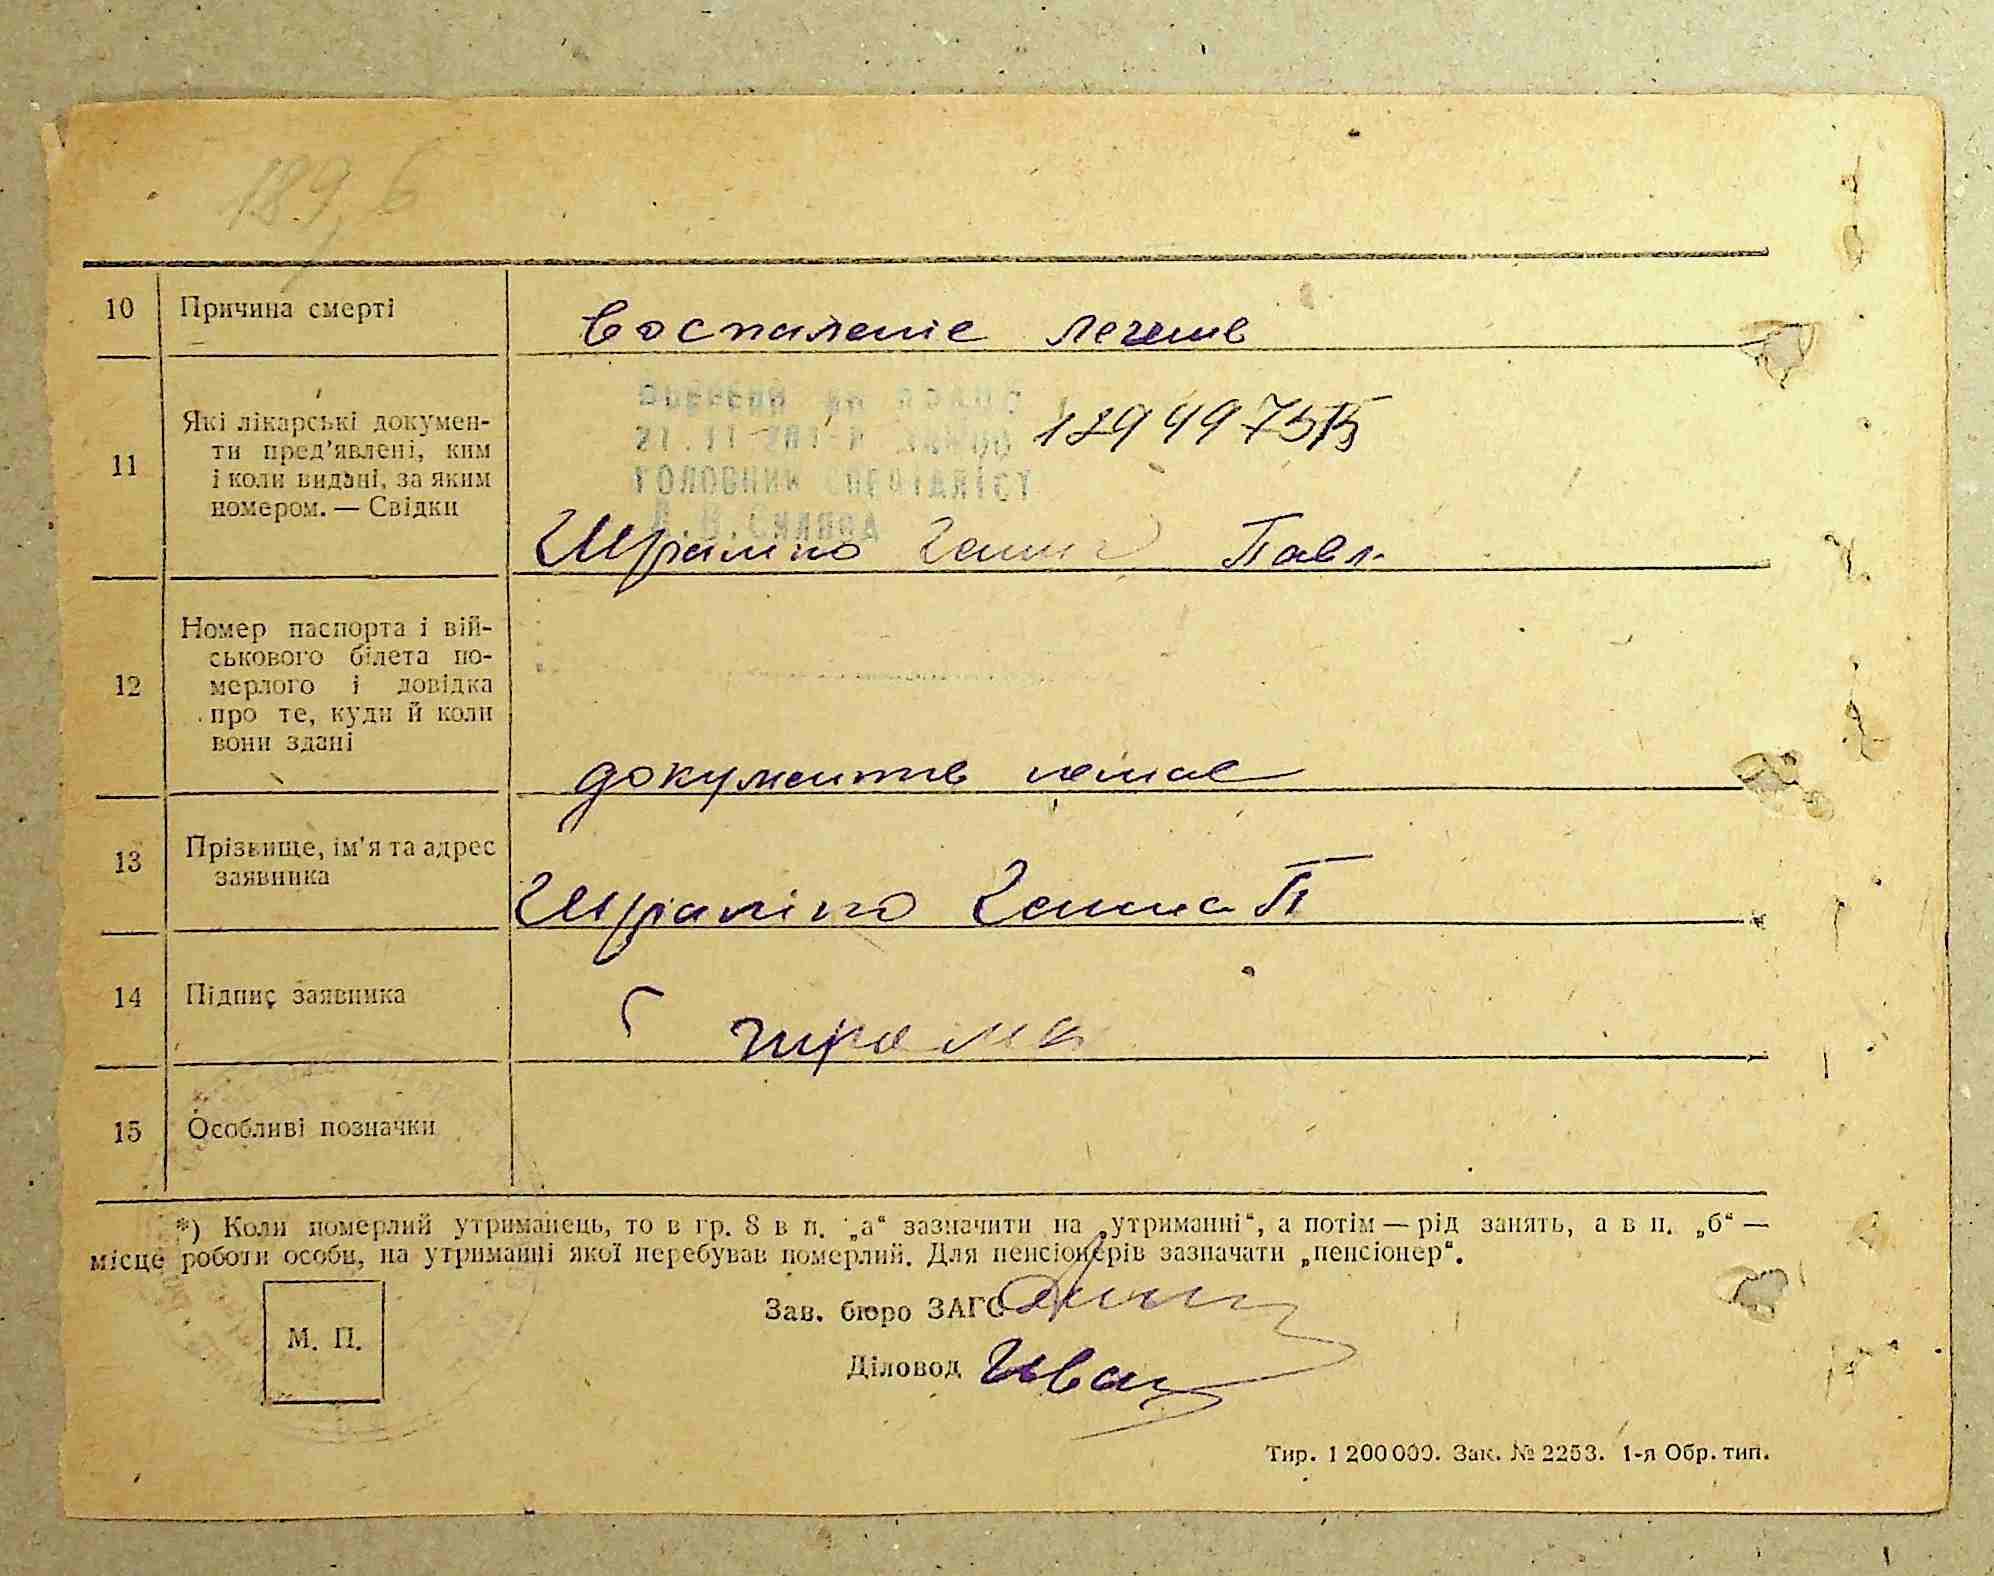 189
10 Причина смерті
воспаленіе легенів
11 Які лікарські докумен-
ти пред'явлені, ким
і коли видані, за яким
номером. — Свідки
ГОЛОВНИЙ СПЕЦІАЛІСТ
Павл.
12 Номер паспорта і вій-
ськового білета по-
мерлого і довідка
про те, куди й коли
вони здані
документів немає
13 Прізвище, ім'я та адрес
заявника
П
14 Підпис заявника
15 Особливі позначки
*) Коли померлий утриманець, то в гр. 8 в п. „а“ зазначити на „утриманні“, а потім — рід занять, а в п. „б“ —
місце роботи особи, на утриманні якої перебував померлий. Для пенсіонерів зазначати „пенсіонер“.
Зав. бюро ЗАГС
М. П.
Діловод
Тир. 1 200 000. Зак. № 2253. 1-я Обр. тип.